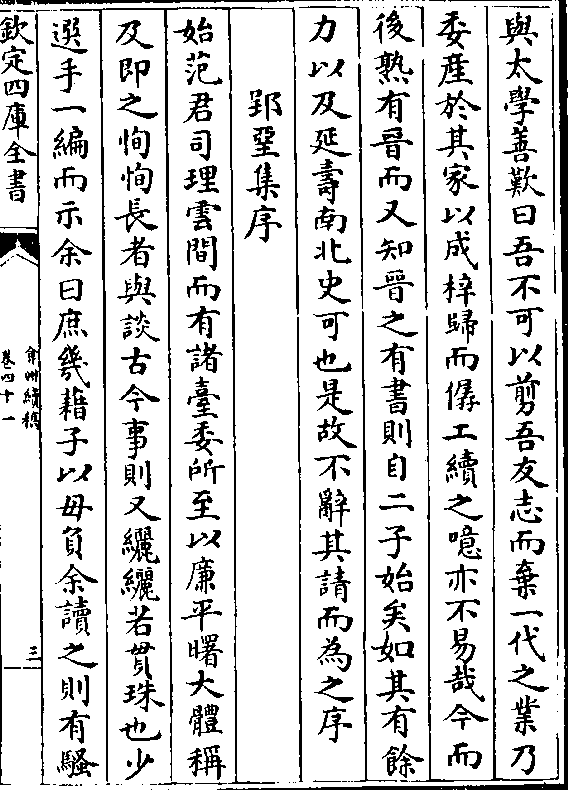 與太學善歎曰吾不可以剪吾友志而棄一代之業乃
委産於其家以成梓歸而孱工續之噫亦不易哉今而
後熟有晉而又知晉之有書則自二子始矣如其有餘
力以及延壽南北史可也是故不辭其請而為之序
郢堊集序
始范君司理雲間而有諸臺委所至以廉平曙大體稱
及即之恂恂長者與談古今事則又纚纚若貫珠也少
選手一編而示余曰庶幾藉子以毋負余讀之則有騷
欽定四庫全書
弇州續稿
卷四十一
三